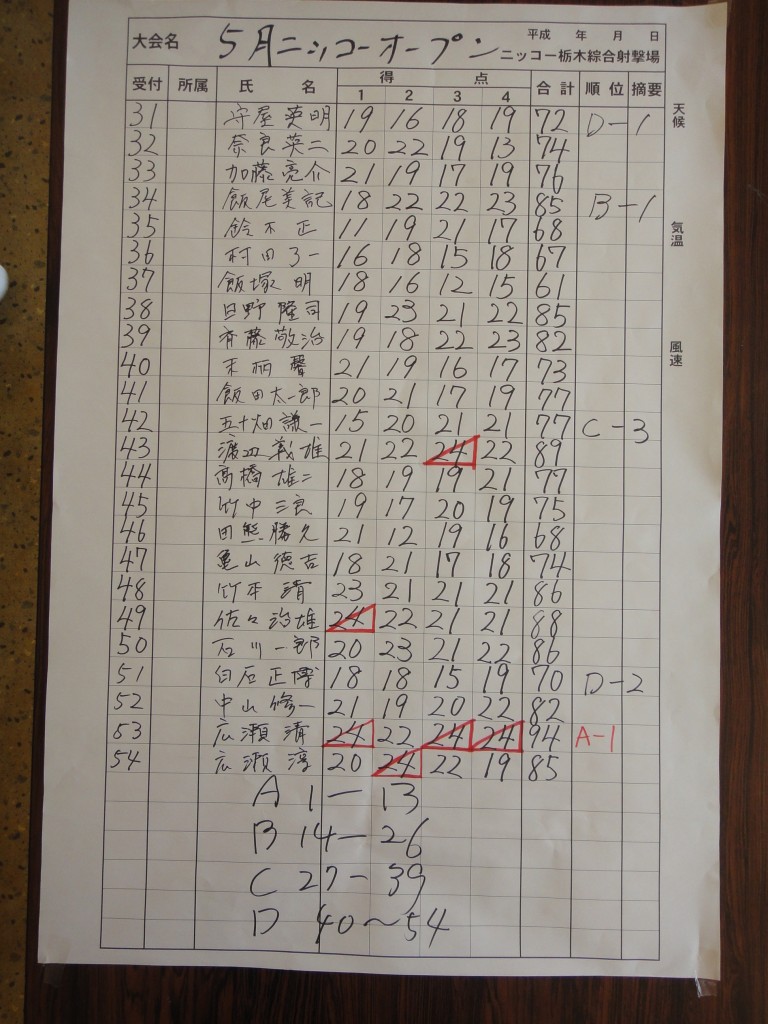 大会名 5月ニッコーオープン 平成 年 月 日
ニッコー栃木綜合射撃場
受付 所属 氏 名 得 点 合計 順位 摘要
1 2 3 4
天候
気温
風速
31 守屋英明 19 16 18 19 72 D-1
32 奈良英二 20 22 19 13 74
33 加藤亮介 21 19 17 19 76
34 飯尾美記 18 22 22 23 85 B-1
35 鈴木正 11 19 21 17 68
36 村田了一 16 18 15 18 67
37 飯塚明 18 16 12 15 61
38 日野隆司 19 23 21 22 85
39 斉藤敬治 19 18 22 23 82
40 21 19 16 17 73
41 飯田太一郎 20 21 17 19 77
42 五十畑謙一 15 20 21 21 77 C-3
43 渡辺義雄 21 22 24 22 89
44 高橋雄二 18 19 19 21 77
45 竹中三良 19 17 20 19 75
46 田熊勝久 21 12 19 16 68
47 亀山徳吉 18 21 17 18 74
48 竹本清 23 21 21 21 86
49 佐々治雄 24 22 21 21 88
50 石川一郎 20 23 21 22 86
51 白石正博 18 18 15 19 70 D-2
52 中山修一 21 19 20 22 82
53 広瀬清 24 22 24 24 94 A-1
54 広瀬淳 20 24 22 19 85
A 1-13
B 14-26
C 27-39
D 40~54